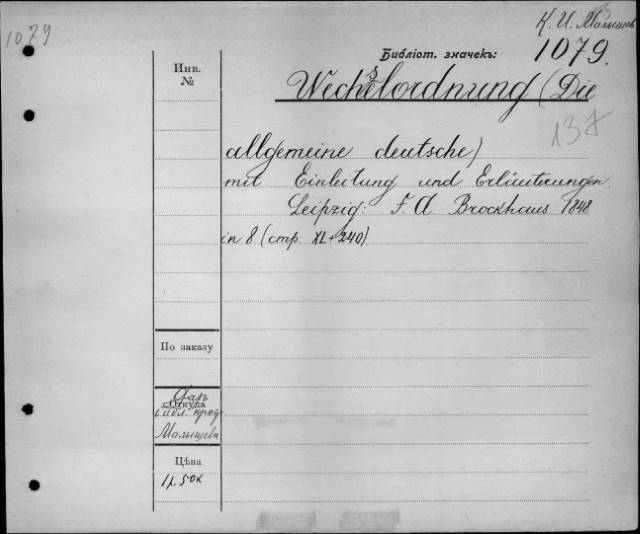 1079
К. И. Малышев
Библіот. значекъ:
1079.
Инв.
№
Wechselordnung (Die
137
allgemeine deutsche)
mit Einleitung und Erläuterungen
Leipzig: F. A. Brockhaus 1848
in 8 (стр. XL + 240)
По заказу
Откуда
Даръ
библ. проф.
Малышева
Цѣна
1 р. 50 к